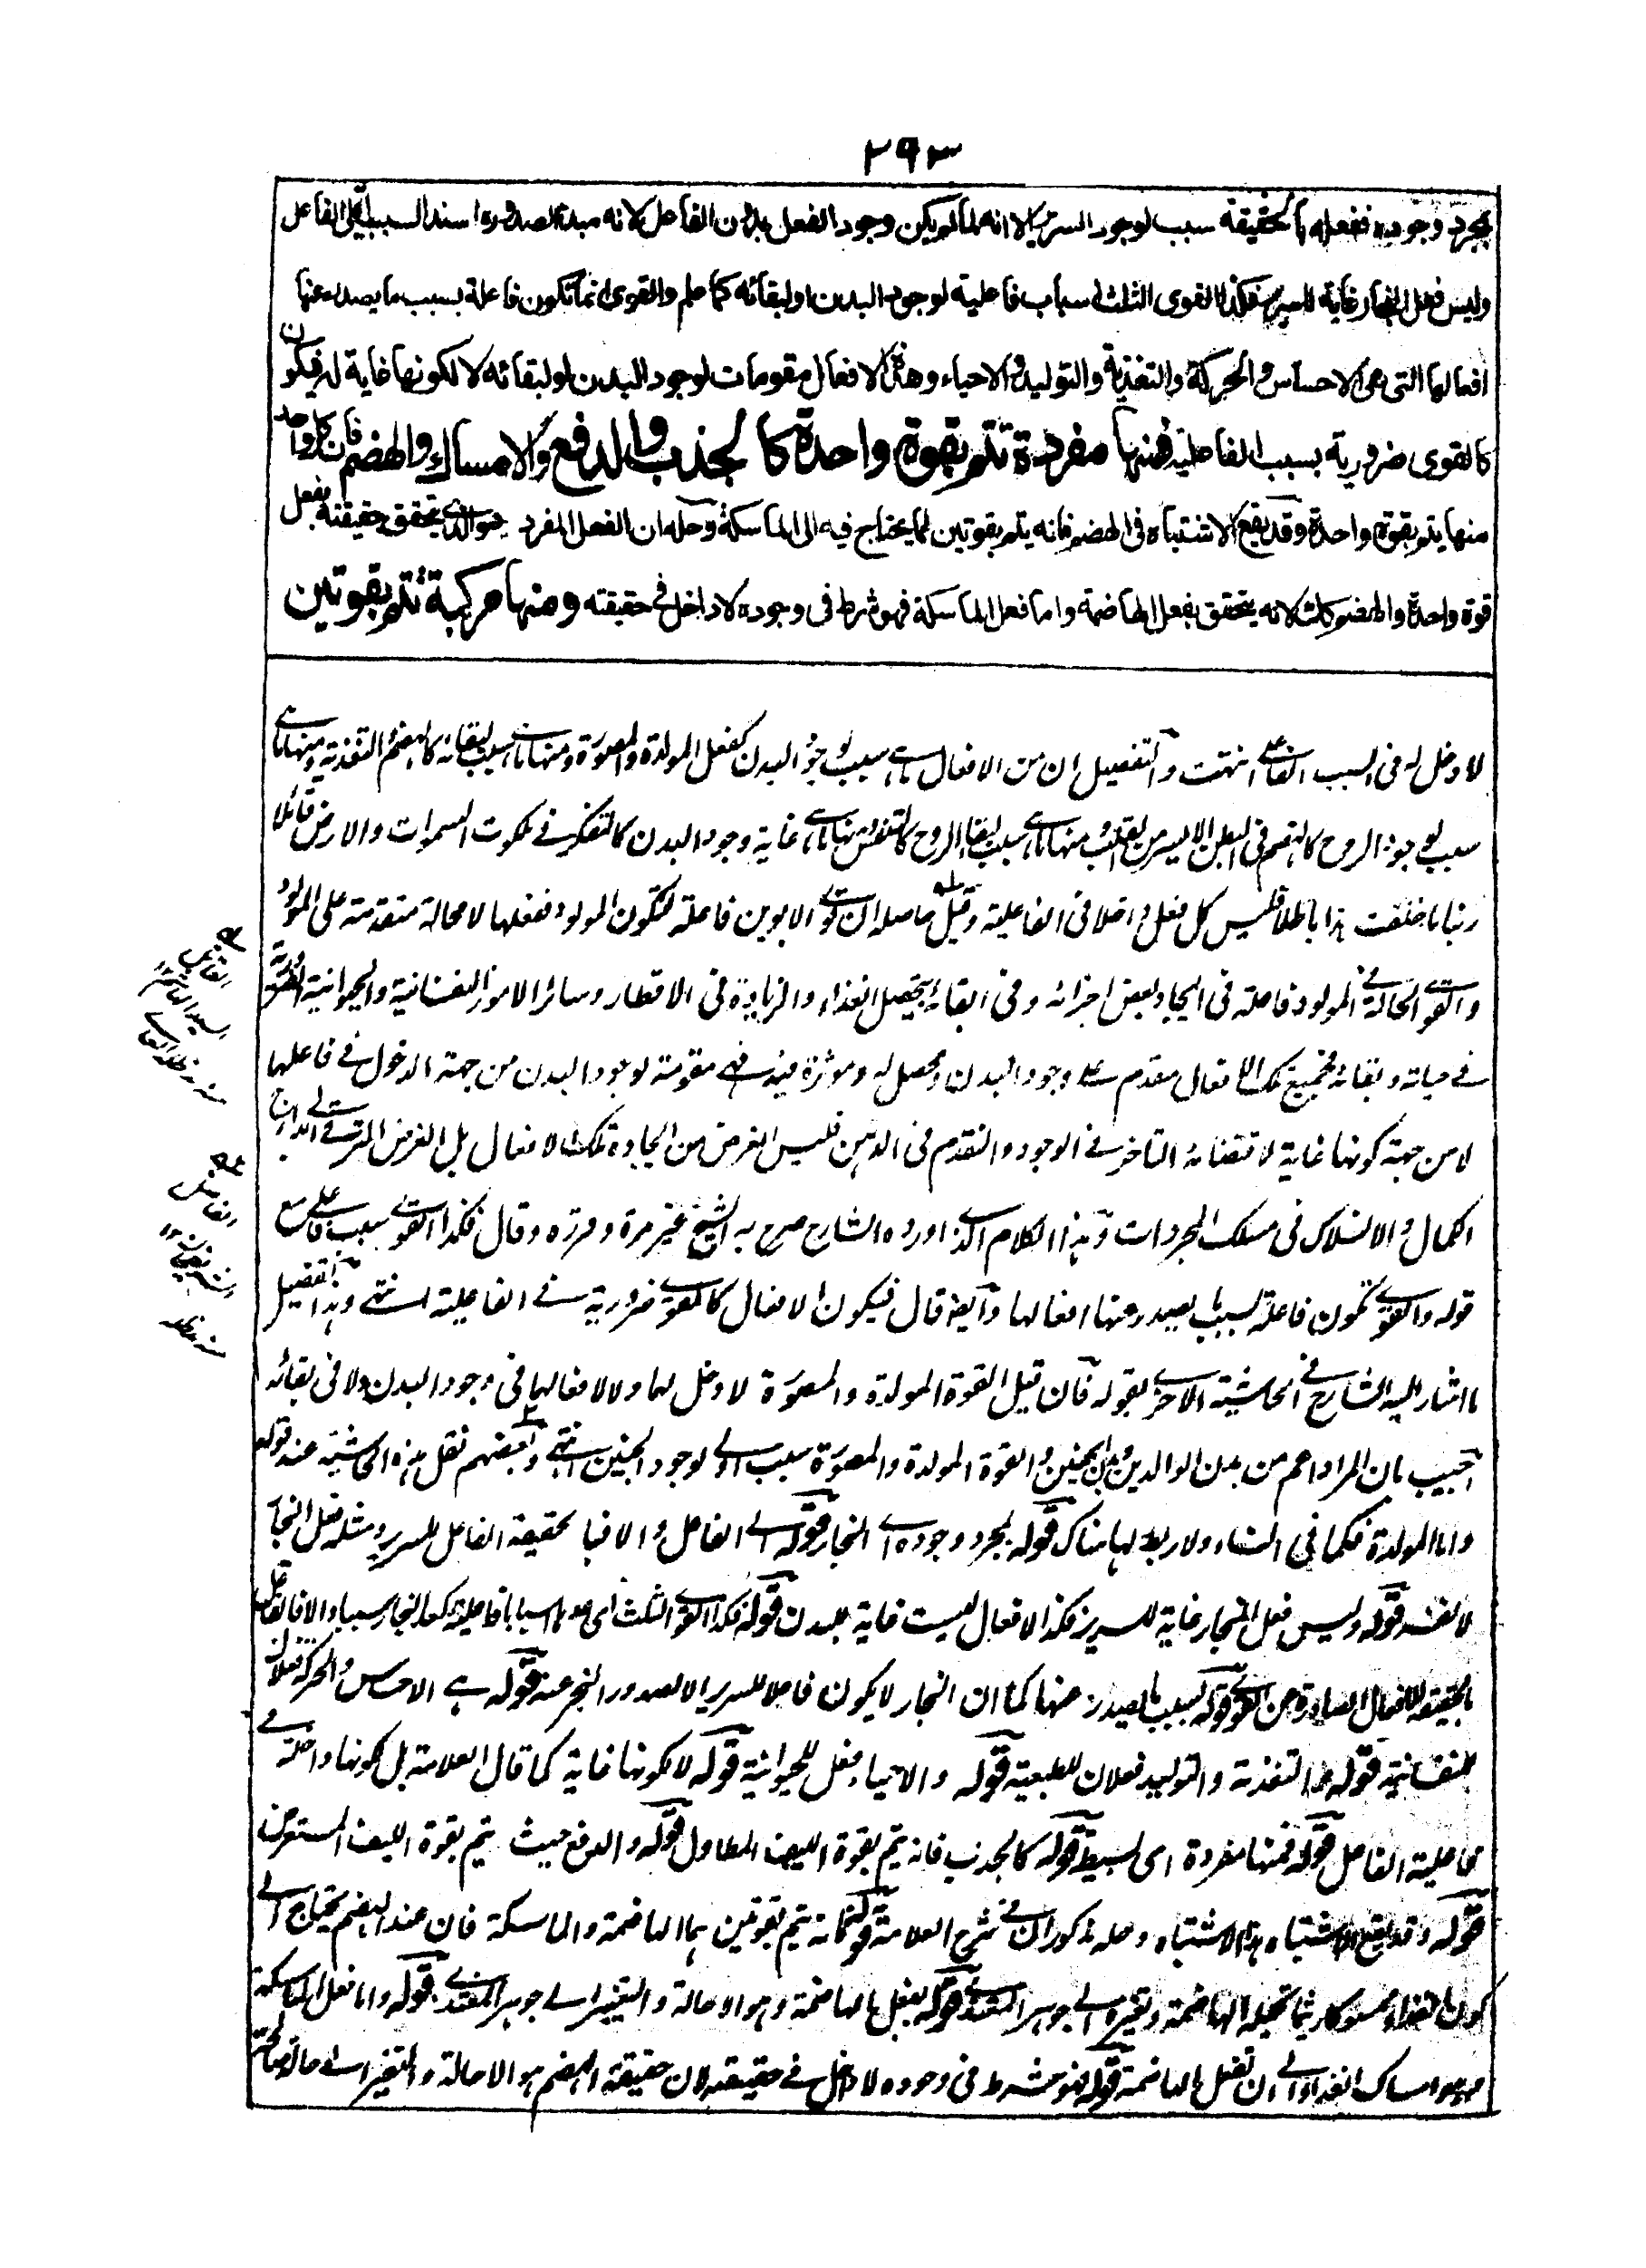 ٢٩٣
بمجرد وجوده ففعله بالحقيقة سبب لوجود السرير الا انه لما لم يكن وجود الفعل بدون الفاعل لانه مبدء لصدوره اسند السببية الى الفاعل
وليس فعل النجار غاية للسرير فكذا القوى الثلث اسباب فاعلية لوجود البدن او لبقائه كما علم والقوى انما تكون فاعلة بسبب ما يصدر عنها
افعالها التى هى الاحساس والحركة والتغذية والتوليد والاحياء وهذه الافعال مقومات لوجود البدن او لبقائه لا لكونها غاية له فيكون
كالقوى ضرورية بسبب الفاعلية فمنها مفردة تتم بقوة واحدة كالجذب والدفع والامساك والهضم فان كل واحد
منها يتم بقوة واحدة وقد يقع الاشتباه فى الهضم فانه يتم بقوتين لما يحتاج فيه الى الماسكة وحله ان الفعل المفرد هو الذى يتحقق حقيقته بفعل
قوة واحدة والهضم كذلك لانه يتحقق بفعل الهاضمة واما فعل الماسكة فهو شرط فى وجوده لا داخل فى حقيقته ومنها مركبة تتم بقوتين
لا دخل له فى السبب الفاعلى انتهت والتفصيل ان من الافعال ما هى سبب لوجود البدن كفعل المولدة والمصورة ومنها ما هى سبب لبقائه كالهضم والتغذية ومنها ما هى
سبب لوجود الروح كالهضم فى البطن الايسر من القلب ومنها ما هى سبب لبقاء الروح كالتنفس ومنها ما هى غاية وجود البدن كالتفكر فى ملكوت السموات والارض قائلا
ربنا ما خلقت هذا باطلا فليس كل فعل داخلا فى الفاعلية وقيل حاصله ان قوى الابوين فاعلة لتكون المولود ففعلها لا محالة متقدمة على المولود
والقوى الحالة فى المولود فاعلة فى ايجاد بعض اجزائه وفى ابقائه بتحصيل الغذاء والزيادة فى الاقطار وسائر الامور النفسانية والحيوانية الضرورية
فى حياته وبقائه فجميع تلك الافعال مقدم على وجود البدن ومحصل له وموثرة فيه فهى مقومة لوجود البدن من جهة الدخول فى فاعلها
لا من جهة كونها غاية لاقتضائه التاخر فى الوجود والتقدم فى الذهن فليس الغرض من ايجاده تلك الافعال بل الغرض الترقى الى مدارج
الكمال والانسلاك فى مسلك المجردات وهذا الكلام الذى اورده الشارح صرح به الشيخ غير مرة وقال فكذا القوى سبب فاعلى مع
قوله والقوى تكون فاعلة بسبب ما يصدر عنها افعالها وايضا قال فيكون الافعال كالقوى ضرورية فى الفاعلية انتهى وبهذا التفصيل
ما اشار اليه الشارح فى الحاشية الاخرى بقوله فان قيل القوة المولدة والمصورة لا دخل لها ولا لافعالها فى وجود البدن ولا فى بقائه
اجيب بان المراد اعم من بدن الوالدين وبدن الجنين والقوة المولدة والمصورة سبب اولى لوجود الجنين انتهى وبعضهم نقل هذه الحاشية عند قوله
واما المولدة فكما فى النساء ولا ربط لها هناك قوله بمجرد وجوده اى النجار قوله الى الفاعل والا فبالحقيقة الفاعل للسرير ومثله فعل النجار
لا نفسه قوله وليس فعل النجار غاية للسرير فكذا الافعال ليست غاية للبدن قوله فكذا القوى الثلث اى اسبابا فاعلية كعد النجار سببا والا فالفاعل
بالحقيقة الافعال الصادرة عن القوى قوله بسبب ما يصدر عنها كما ان النجار لا يكون فاعلا للسرير الا لصدور النجر عنه قوله هى الاحساس والحركة فعلان
للنفسانية قوله والتغذية والتوليد فعلان للطبعية قوله والاحياء فعل للحيوانية قوله لا لكونها غاية كما قال العلامة بل لكونها داخلة فى
فاعلية الفاعل قوله فمنها مفردة اى بسيطة قوله كالجذب فانه يتم بقوة الليف المطاول قوله والدفع حيث يتم بقوة الليف المستعرض
قوله وقد يقع الاشتباه هذا الاشتباه وحله مذكوران فى شرح العلامة قوله فانه يتم بقوتين هما الهاضمة والماسكة فان عند الهضم يحتاج الى
كون الغذاء ممسوكا ريثما تحيله الهاضمة وتغيره الى جوهر المغتذى قوله بفعل الهاضمة وهو الاحالة والتغيير الى جوهر المغتذى قوله واما فعل الماسكة
وهو امساك الغذاء الى ان تفعل الهاضمة قوله فهو شرط فى وجوده لا داخل فى حقيقته لان حقيقة الهضم هو الاحالة والتغير الى حالة صالحة